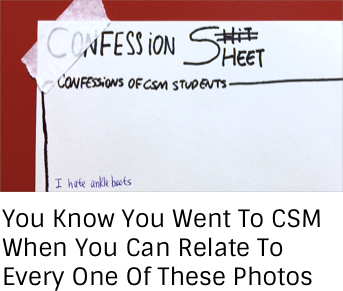 CONFESSION SHIT
HEET
CONFESSIONS OF CSM STUDENTS
I hate ankle boots
You Know You Went To CSM
When You Can Relate To
Every One Of These Photos